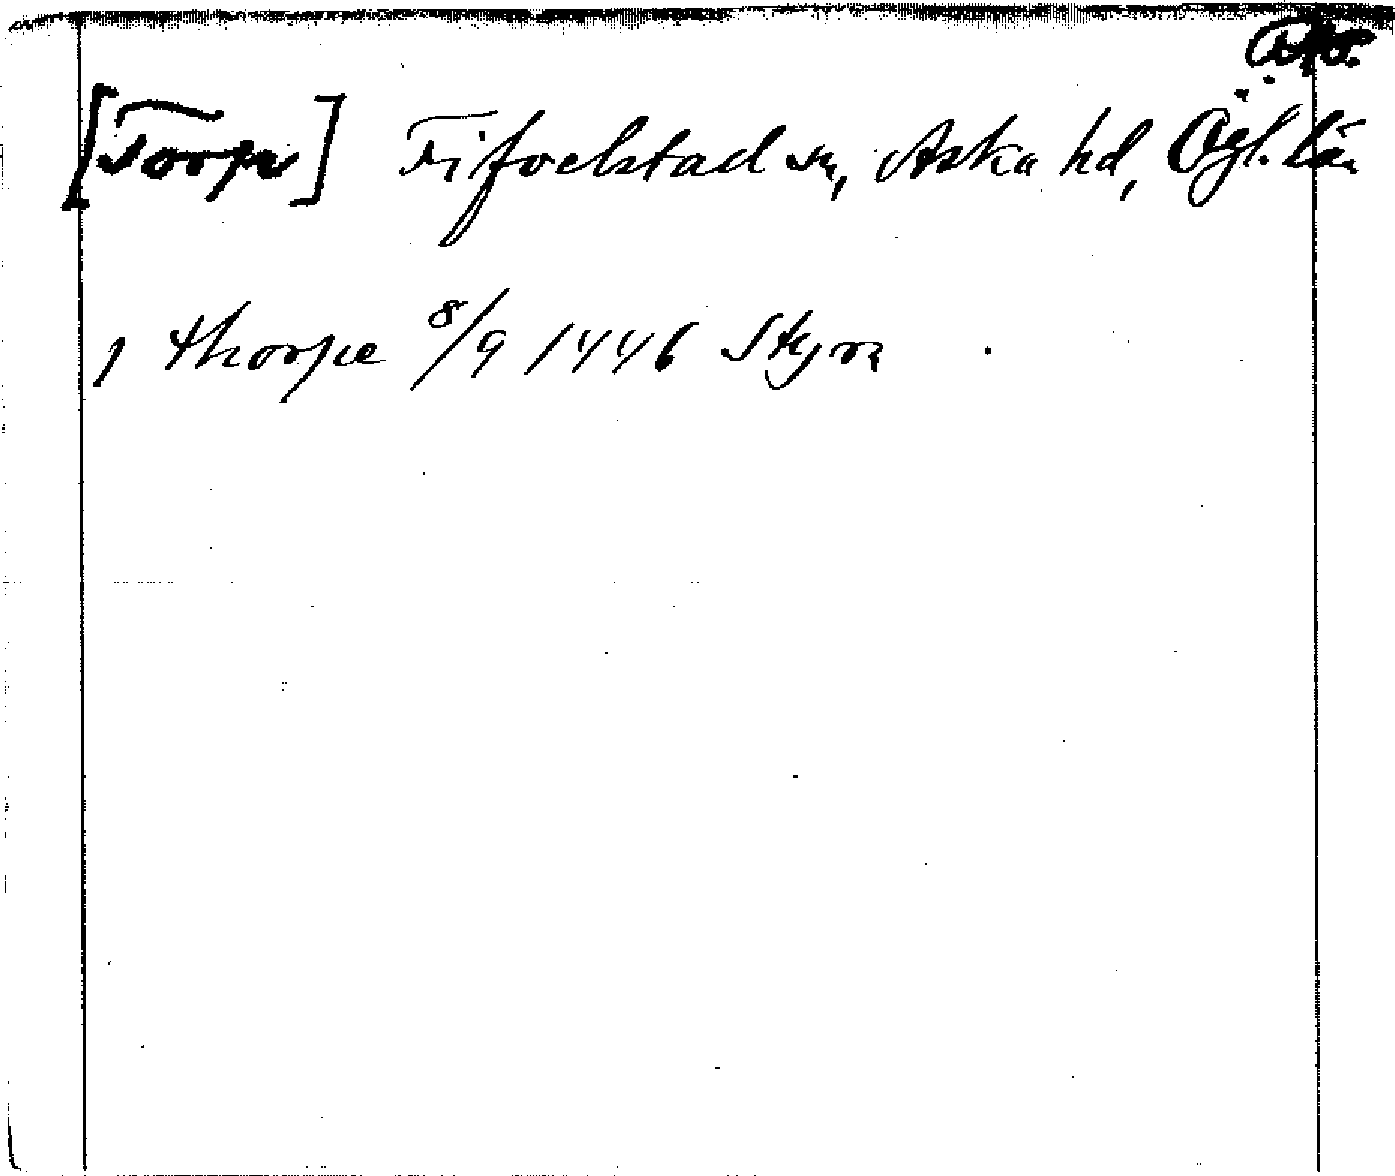 [Torpa] Fifvelstad sn, Aska hd, Ögl. län
j thorpe 8/9 1446 Styr